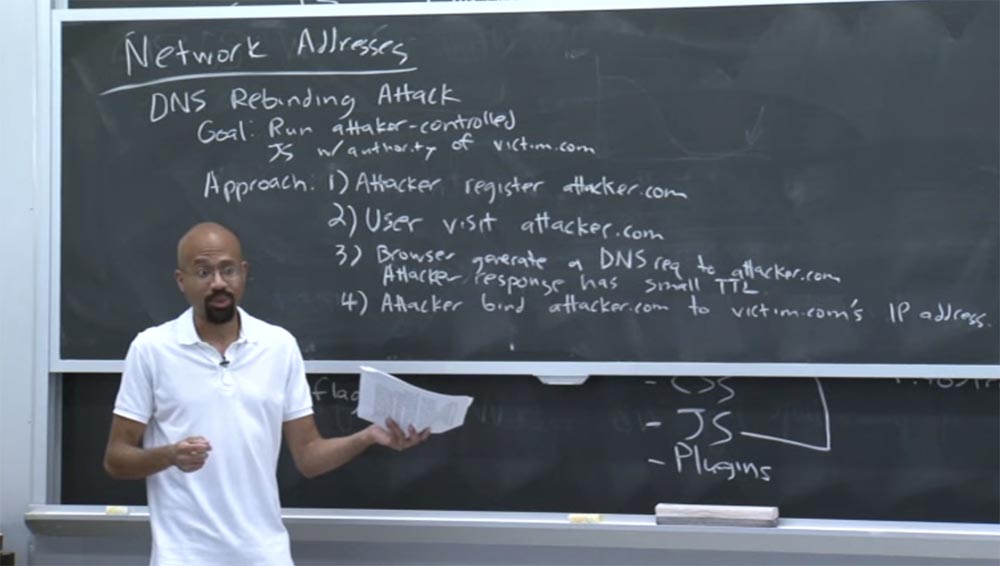 Network Addresses
DNS Rebinding Attack
Goal: Run attaker-controlled
JS w/ authority of victim.com
Approach: 1) Attacker register attacker.com
2) User visit attacker.com
3) Browser generate a DNS req to attacker.com
Attacker response has small TTL
4) Attacker bind attacker.com to victim.com's IP address.
- CSS
- JS
- Plugins